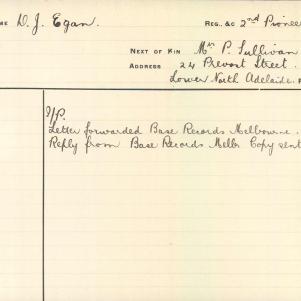 ME D. J. Egan. REG., &C 2nd Pionee
NEXT OF KIN Mrs P. Sullivan
ADDRESS 24 Prevost Street.
Lower North Adelaide.
I/P.
Letter forwarded Base Records Melbourne.
Reply from Base Records Melb. Copy sent